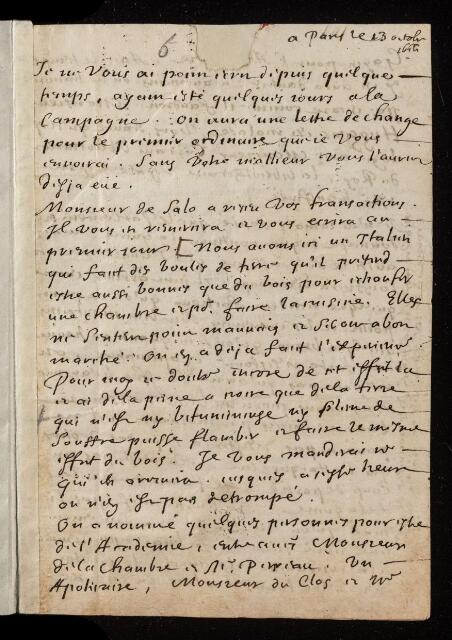 6
a Paris le 13 octobr
1666
Je ne vous ai poinct escri depuis quelque
temps, ayant esté quelques iours a la
Campagne. On aura une lettre de change
pour le premier ordinaire que ie vous
envoirai. Sans votre malheur vous l'auriez
desja eüe.
Monsieur de Salo a receu vos transactions.
Il vous en remercira et vous escrira au
premier iour. [Nous avons ici un Italien
qui faict des boules de terre qu'il pretend
estre aussi bonnes que du bois pour eschaufer
une chambre et pr. faire la cuisine. Elles
ne sentent poinct mauvais et sont a bon
marché. On en a deja faict l'experience
Pour moy ie doute encore de cet effect la
et ai de la peine a croire que de la terre
qui n'est ny bitumineuse ny pleine de
souffre puisse flamber et faire le mesme
effect du bois. Je vous manderai ce
qui en arrivera. iusques a cette heure
on n'en est pas detrompé.
On a nommé quelques personnes pour estre
de l'Academie, entre autres Monsieur
de la Chambre et Mr. Perreau. Un
Apoticaire, Monsieur du Clos et